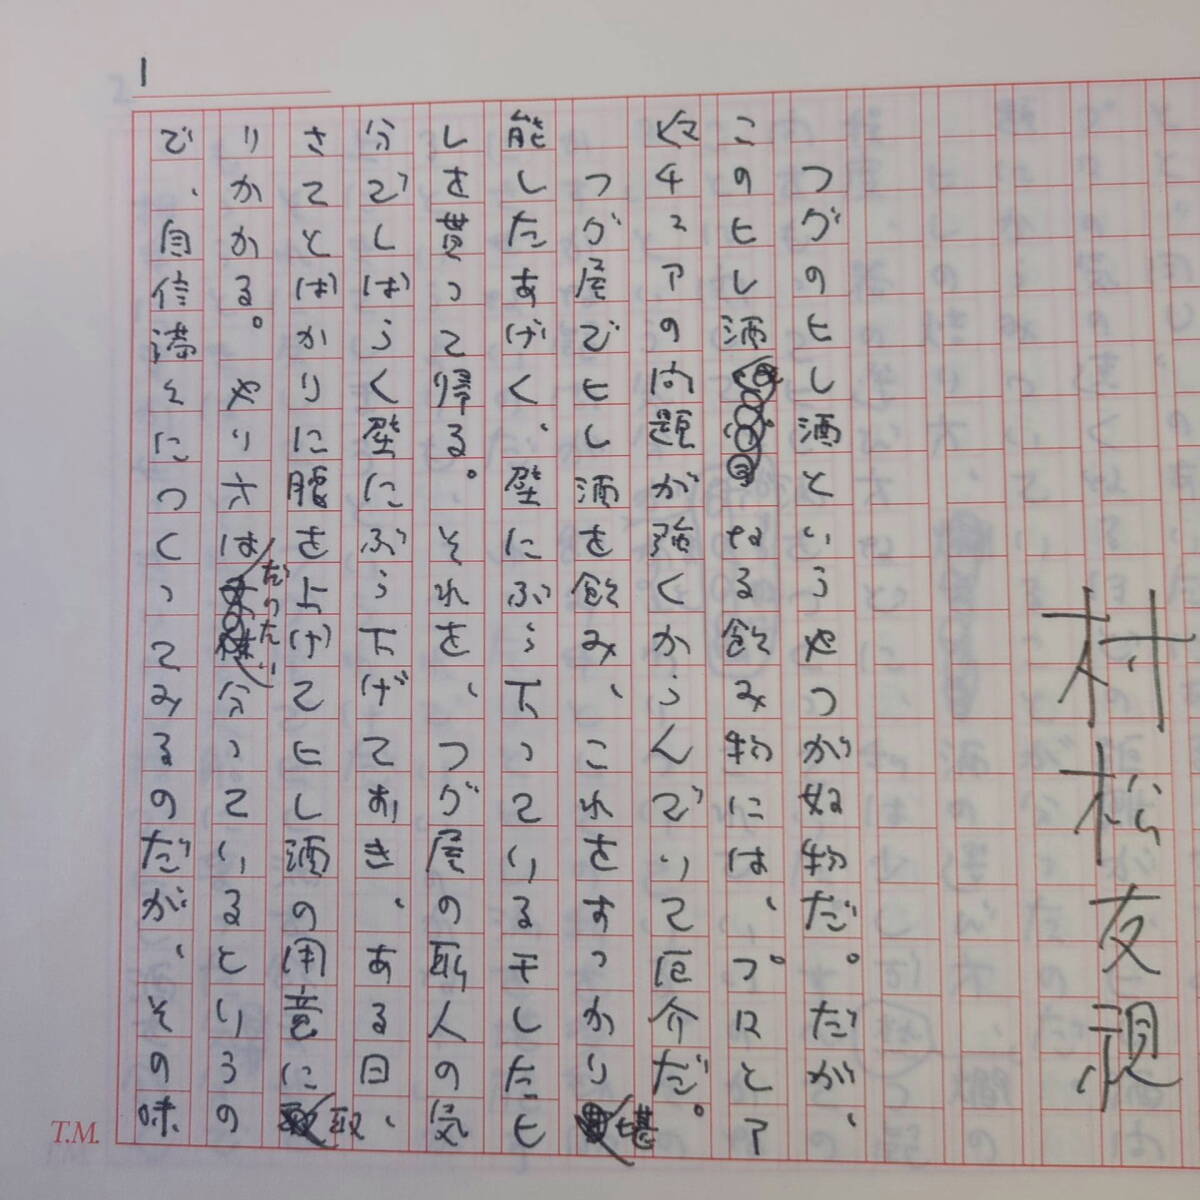 村松友視
フグのヒレ酒というやつが好物だ。だが、
このヒレ酒なる飲み物には、プロとア
マチュアの問題が強くからんでいて厄介だ。
フグ屋でヒレ酒を飲み、これをすっかり堪
能したあげく、壁にぶら下っている干したヒ
レを貰って帰る。それを、フグ屋の職人の気
分でしばらく壁にぶら下げておき、ある日、
さてとばかりに腰を上げてヒレ酒の用意に取
りかかる。やり方はだいたい分っているというの
で、自信満々につくってみるのだが、その味
1
T.M.